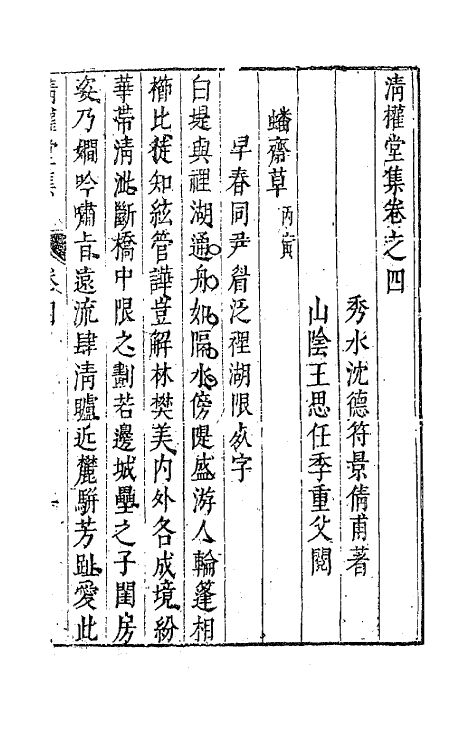 清權堂集卷之四
秀水沈德符景倩甫著
山陰王思任季重父閱
蟠齋草 丙寅
早春同尹泛裡湖限字
白堤與裡湖通舟如隔水傍隄盛游人輪篷相
櫛比徒知絃管譁豈解林樊美内外各成境紛
華帶清泚斷橋中限之劃若邊城壘之子閨房
姿乃嫺吟嘯旨遠流肆清矑近麓駢芳趾愛此
清權堂集 卷四 一